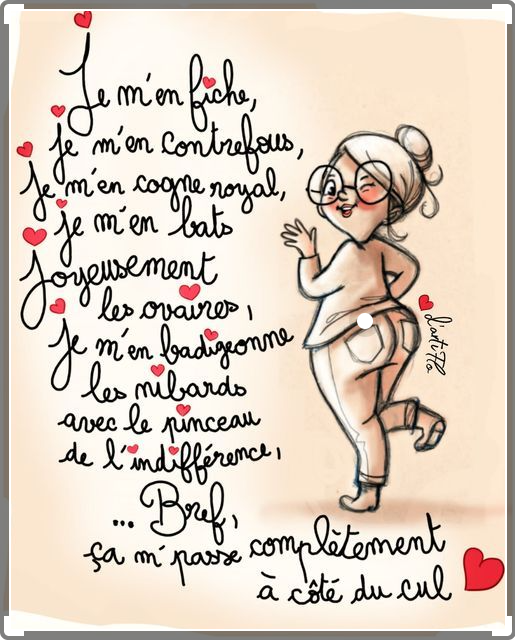 Je m'en fiche,
je m'en contrefous,
je m'en cogne royal,
je m'en bats
joyeusement
les ovaires,
je m'en badigeonne
les nibards
avec le pinceau
de l'indifférence,
... Bref,
ça m'passe complètement
à côté du cul